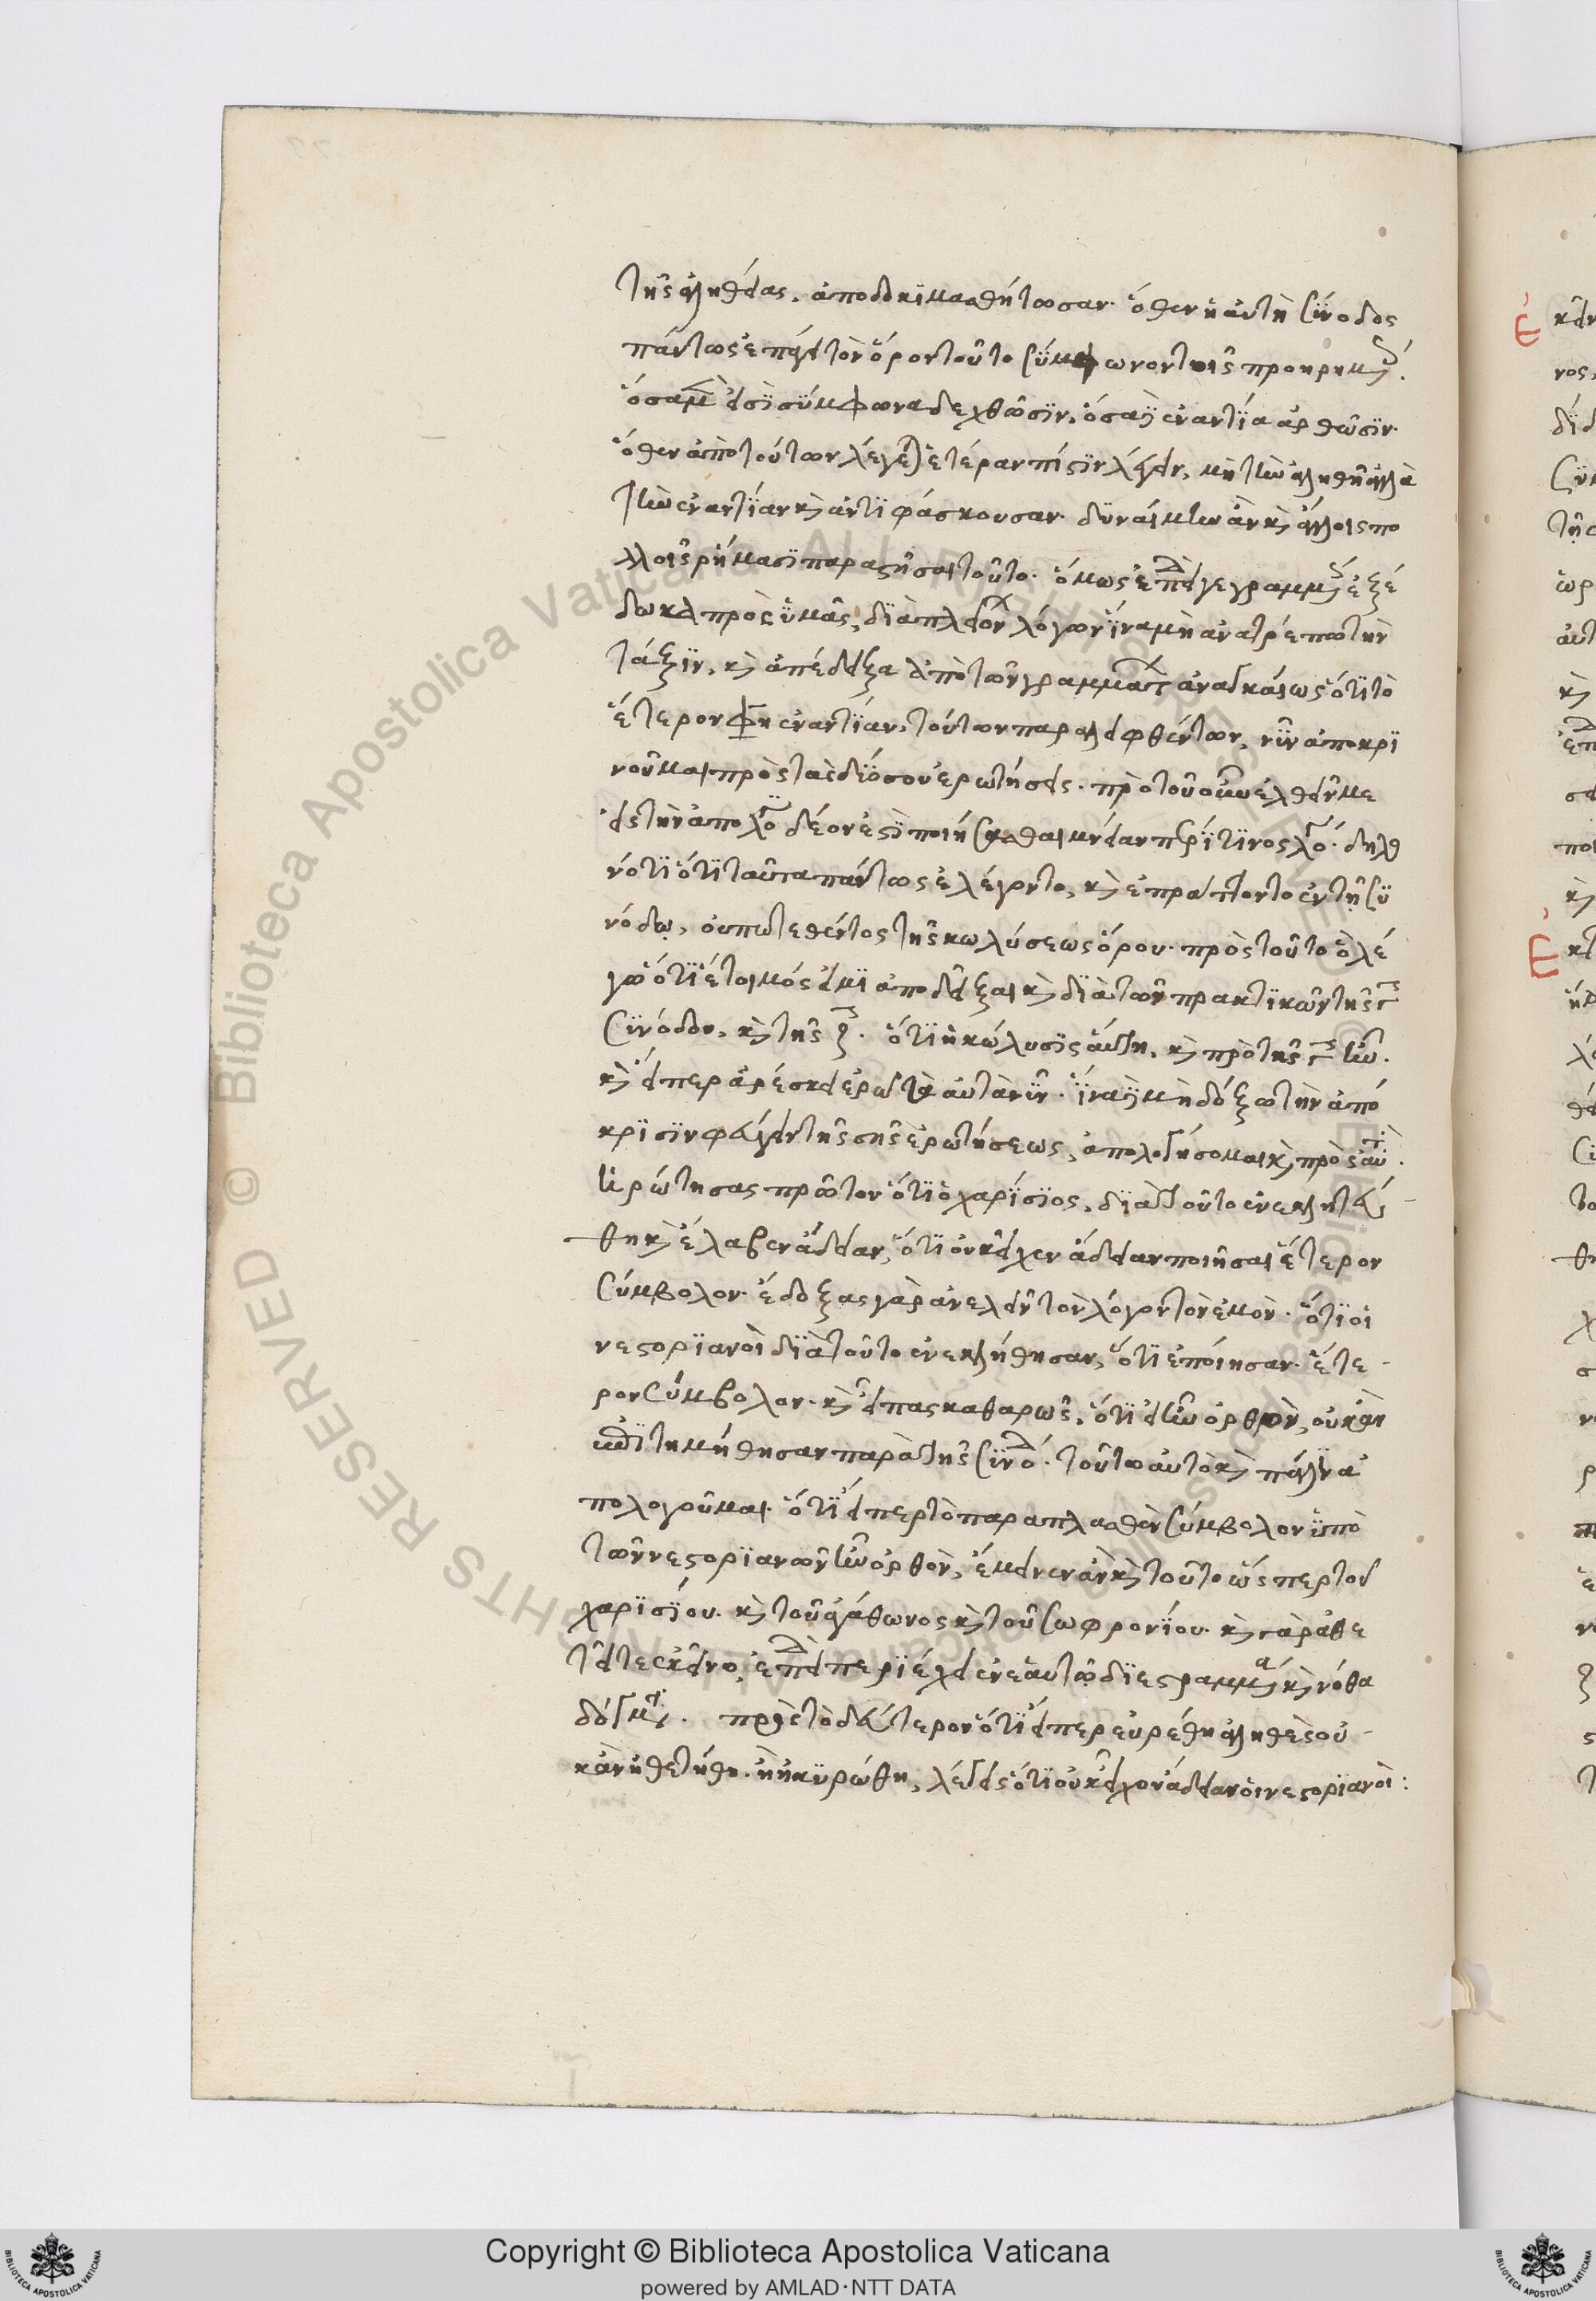 τῆς ἀληθείας, ἀποδοκϊμασθήτωσαν· ὅθεν ἡ αὐτὴ σύνοδος
πάντως ἐπάγει τὸν ὅρον τοῦτο σύμφωνον τοῖς προηρημένοις·
ὅσα μὲν εἰσὶ σύμφωνα δεχθῶσϊν, ὅσα δὲ ἐναντία ἀρθῶσϊν·
ὅθεν ἀπὸ τούτων λέγεται ἑτέραν πίστϊν λέγειν, μὴ τὴν ἀληθῆ ἀλλὰ
τὴν ἐναντίαν καὶ ἀντϊφάσκουσαν· δυναίμην ἂν καὶ ἄλλοις πο
λλοῖς ῥήμασϊ παραστῆσαι τοῦτο· ὅμως ἐπεὶ γεγραμμένως ἐξέ
δωκα πρὸς ὑμᾶς, δϊὰ πλειόνων λόγων ἵνα μὴ ἀνατρέπω τὴν
τάξϊν, καὶ ἀπέδειξα ἀπὸ τῶν γραμμάτων ἀναγκαίως ὅτϊ τὸ
ἕτερον φησὶ ἐναντίαν, τούτων παραλειφθέντων, νῦν ἀποκρϊ
νοῦμαι πρὸς τὰς δύο σου ἐρωτήσεις· πρὸ τοῦ οὖν ἐλθεῖν με
εἰς τὴν ἀπολογίαν δέον ἐστὶ ποιήσασθαι μνείαν περί τϊνος λόγου· δηλο
νότϊ ὅτϊ ταῦτα πάντως ἐλέγοντο, καὶ ἐπράττοντο ἐν τῇ συ
νόδῳ, οὔπω τεθέντος τῆς κωλύσεως ὅρου· πρὸς τοῦτο ὃ λέ
γω ὅτϊ ἕτοιμός εἰμι ἀποδεῖξαι καὶ δϊὰ τῶν πρακτϊκῶν τῆς ϛ
συνόδου, καὶ τῆς ζ· ὅτϊ ἡ κώλυσϊς αὕτη, καὶ πρὸ τῆς ϛ ἦν·
καὶ εἴπερ ἀρέσκει ἐρῶ τὰ αὐτὰ νῦν· ἵνα δὲ μὴ δόξω τὴν ἀπό
κρϊσϊν φεύγειν τῆς σῆς ἐρωτήσεως, ἀπολογήσομαι καὶ πρὸς αὐτήν·
ἠρώτησας πρῶτον ὅτϊ ὁ χαρίσϊος, δϊὰ τοῦτο ἐνεκλητεύ
θη καὶ ἔλαβεν ἄδειαν, ὅτϊ οὐκ εἶχεν ἄδειαν ποιῆσαι ἕτερον
σύμβολον· ἔδοξας γὰρ ἀνελεῖν τὸν λόγον τὸν ἐμὸν· ὅτϊ οἱ
νεστορϊανοὶ δϊὰ τοῦτο ἐνεκλήθησαν, ὅτϊ ἐποίησαν· ἕτε
ρον σύμβολον· καὶ εἶπας καθαρῶς, ὅτϊ εἰ ἦν ὀρθὸν, οὐκ ἂν
ἐπϊτϊμήθησαν παρὰ τῆς συνόδου· τοῦτο αὐτὸ καὶ πάλϊν ἀ
πολογοῦμαι· ὅτϊ εἴπερ τὸ παραπλασθὲν σύμβολον ὑπὸ
τῶν νεστορϊανῶν ἦν ὀρθὸν, ἔμεινεν ἂν καὶ τοῦτο ὥσπερ τοῦ
χαρϊσίου· καὶ τοῦ ἀγάθωνος καὶ τοῦ σωφρονίου· καὶ παρὰθε
τεῖτε ἐκεῖνο, ἐπεὶ περιέχει ἐν ἑαυτῷ δϊεστραμμένα καὶ νόθα
δόγματα· πρὸς τὸ δεύτερον ὅτϊ εἴπερ εὑρέθη ἀληθὲς οὐ
κ ἂν ἠθετήθη· ἢ ἠκυρώθη, λέγεις ὅτϊ οὐκ εἶχον ἄδειαν οἱ νεστορϊανοὶ:
Copyright © Biblioteca Apostolica Vaticana
powered by AMLAD·NTT DATA